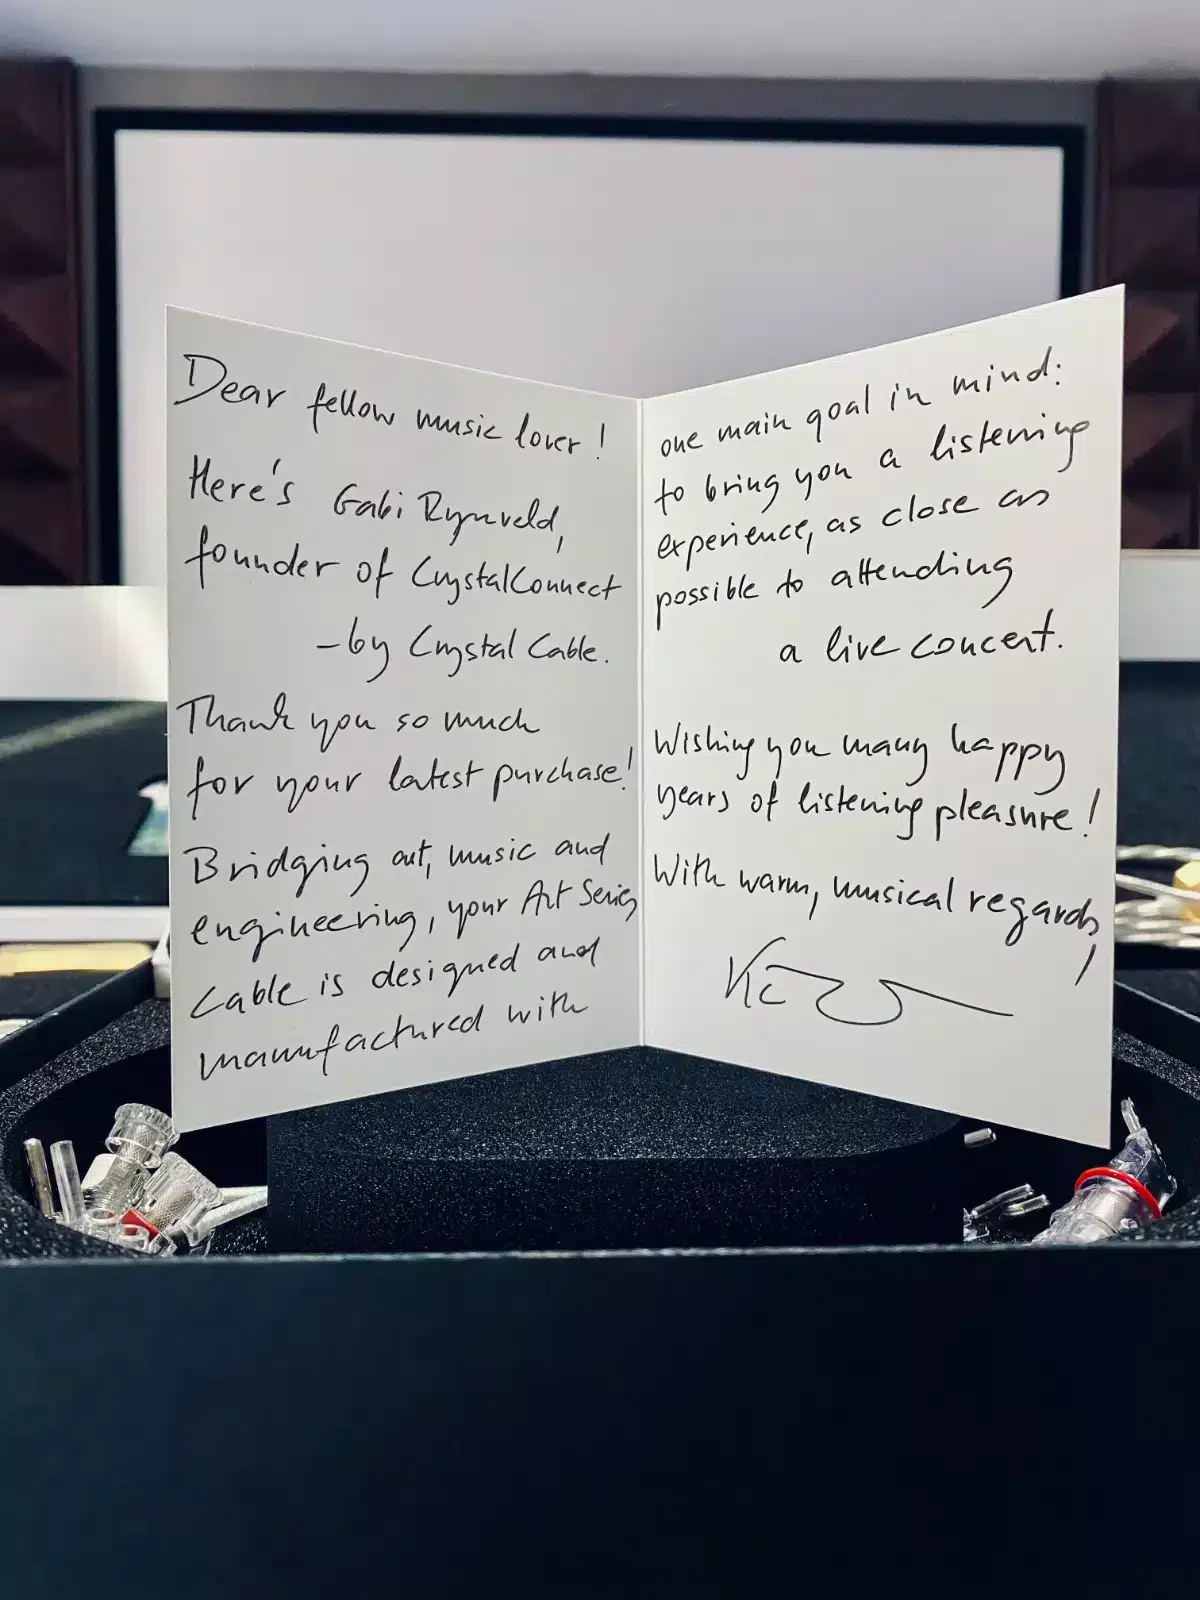 Dear fellow music lover!
Here's Gabi Rynveld,
founder of CrystalConnect
-by Crystal Cable.
Thank you so much
for your latest purchase!
Bridging art, music and
engineering, your Art Series
cable is designed and
manufactured with
one main goal in mind:
to bring you a listening
experience, as close as
possible to attending
a live concert.
Wishing you many happy
years of listening pleasure!
With warm, musical regards,